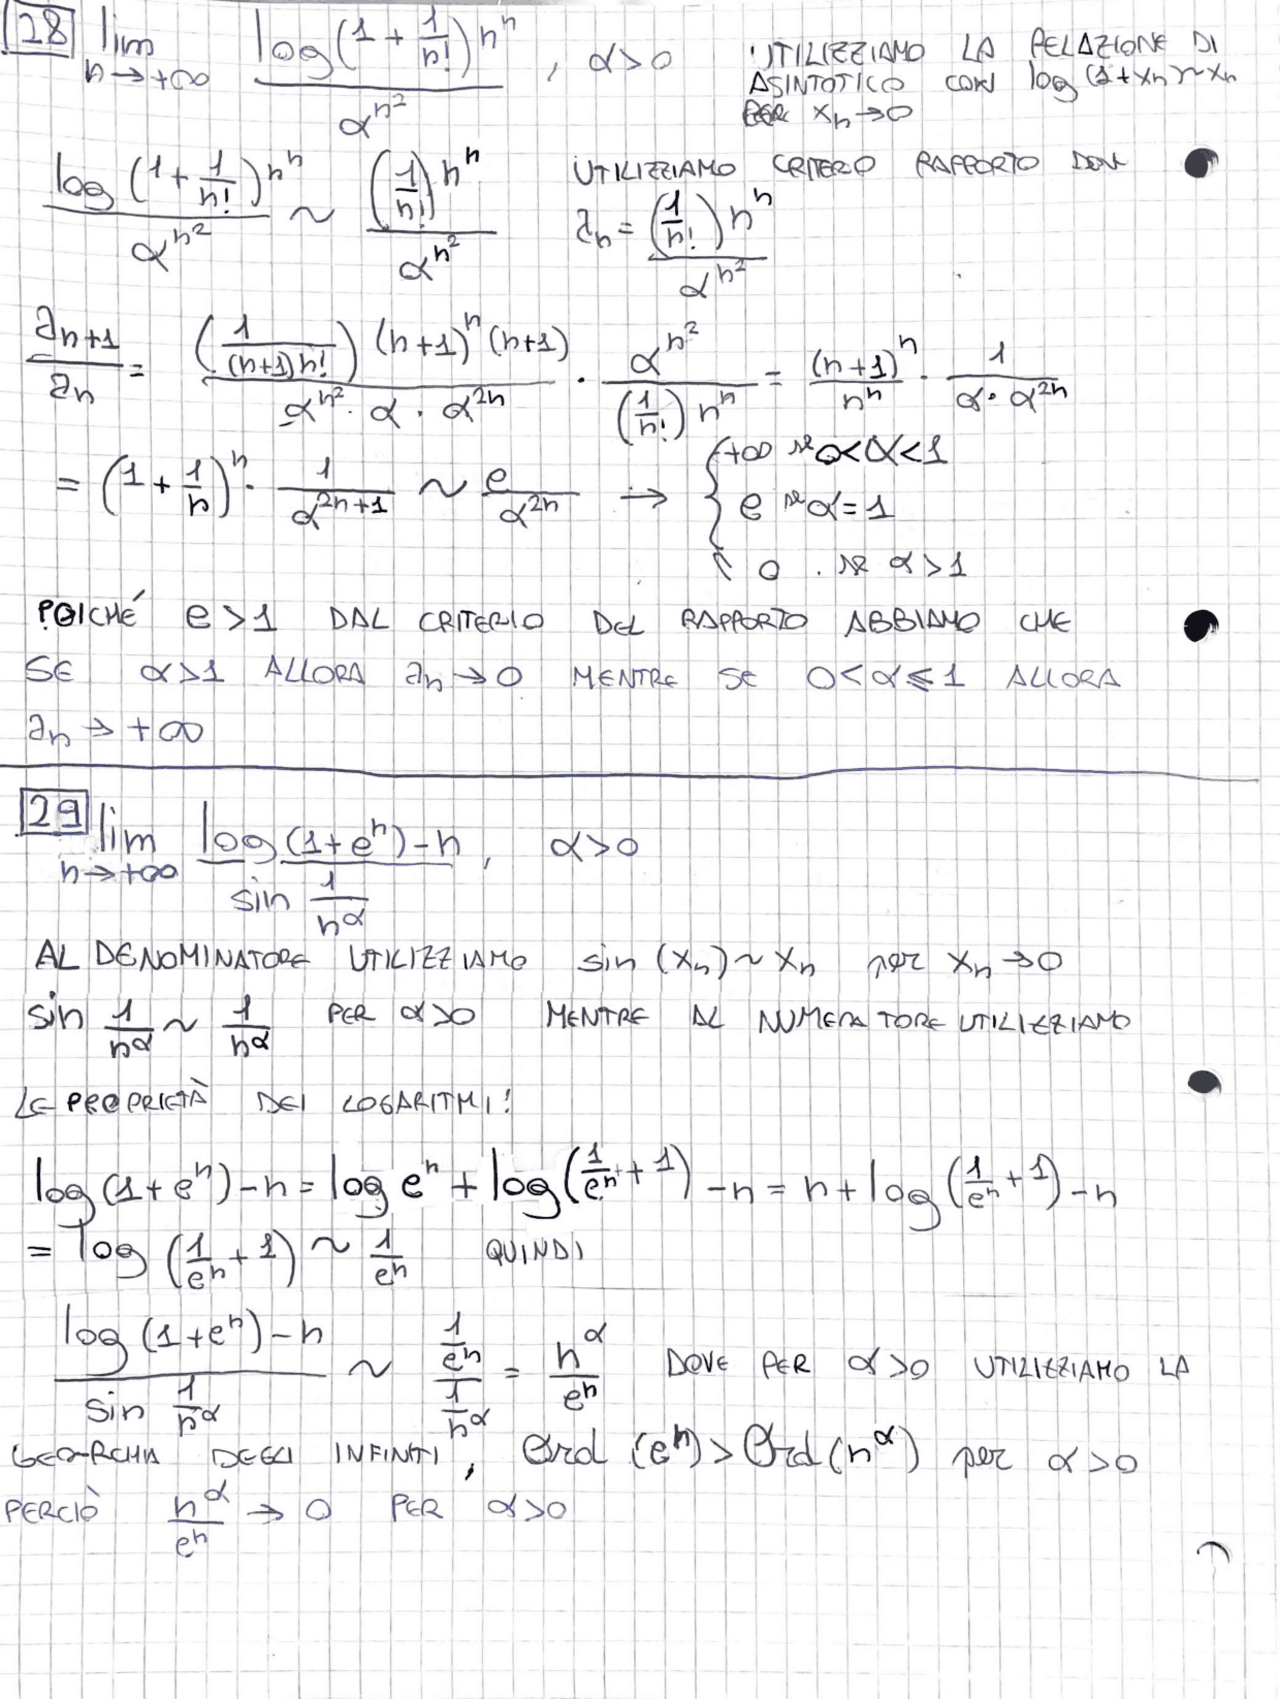 28 lim n→+∞ log(1 + 1/n!) n^n / α^(n²) , α>0
UTILIZZIAMO LA RELAZIONE DI
ASINTOTICO CON log(1+xn)~xn
PER xn→0
log(1+1/n!) n^n / α^(n²) ~ (1/n!) n^n / α^(n²)
UTILIZZIAMO CRITERIO RAPPORTO DOVE
an = (1/n!) n^n / α^(n²)
an+1/an = (1/((n+1)n!)) (n+1)^n (n+1) / (α^(n²) · α · α^(2n)) · α^(n²) / ((1/n!) n^n) = (n+1)^n / n^n · 1/(α · α^(2n))
= (1 + 1/n)^n · 1/α^(2n+1) ~ e/α^(2n) → { +∞ se 0<α<1
e se α=1
0 . se α>1
POICHÉ e>1 DAL CRITERIO DEL RAPPORTO ABBIAMO CHE
SE α>1 ALLORA an→0 MENTRE SE 0<α≤1 ALLORA
an→+∞
29 lim n→+∞ (log(1+e^n)-n) / (sin 1/n^α) , α>0
AL DENOMINATORE UTILIZZIAMO sin(xn)~xn per xn→0
sin 1/n^α ~ 1/n^α PER α>0 MENTRE AL NUMERATORE UTILIZZIAMO
LE PROPRIETÀ DEI LOGARITMI:
log(1+e^n)-n = log e^n + log(1/e^n + 1) -n = n + log(1/e^n + 1) -n
= log(1/e^n + 1) ~ 1/e^n QUINDI
(log(1+e^n)-n) / (sin 1/n^α) ~ (1/e^n) / (1/n^α) = n^α/e^n DOVE PER α>0 UTILIZZIAMO LA
DEGLI INFINITI, Ord(e^n) > Ord(n^α) per α>0
PERCIÒ n^α/e^n → 0 PER α>0